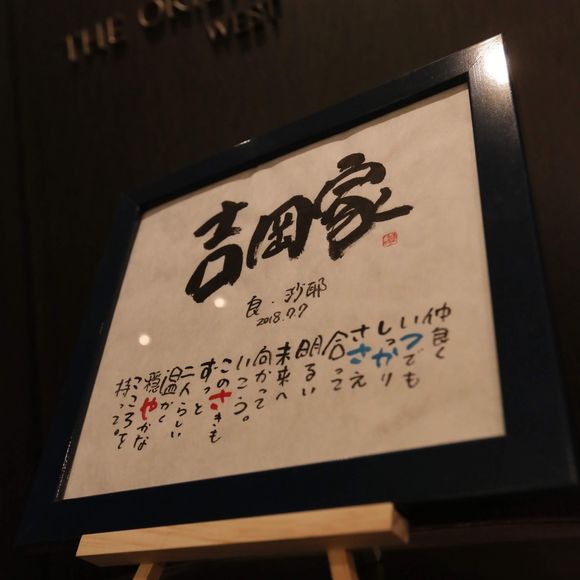 THE OK
WEST
吉岡家
良・紗耶
2018.7.7
仲良く
いつでも
しっかり
ささえ
合って
明るい
未来へ
向かって
いこう。
このさきも
ずっと
二人らしい
温かく
穏やかな
こころを
持って。